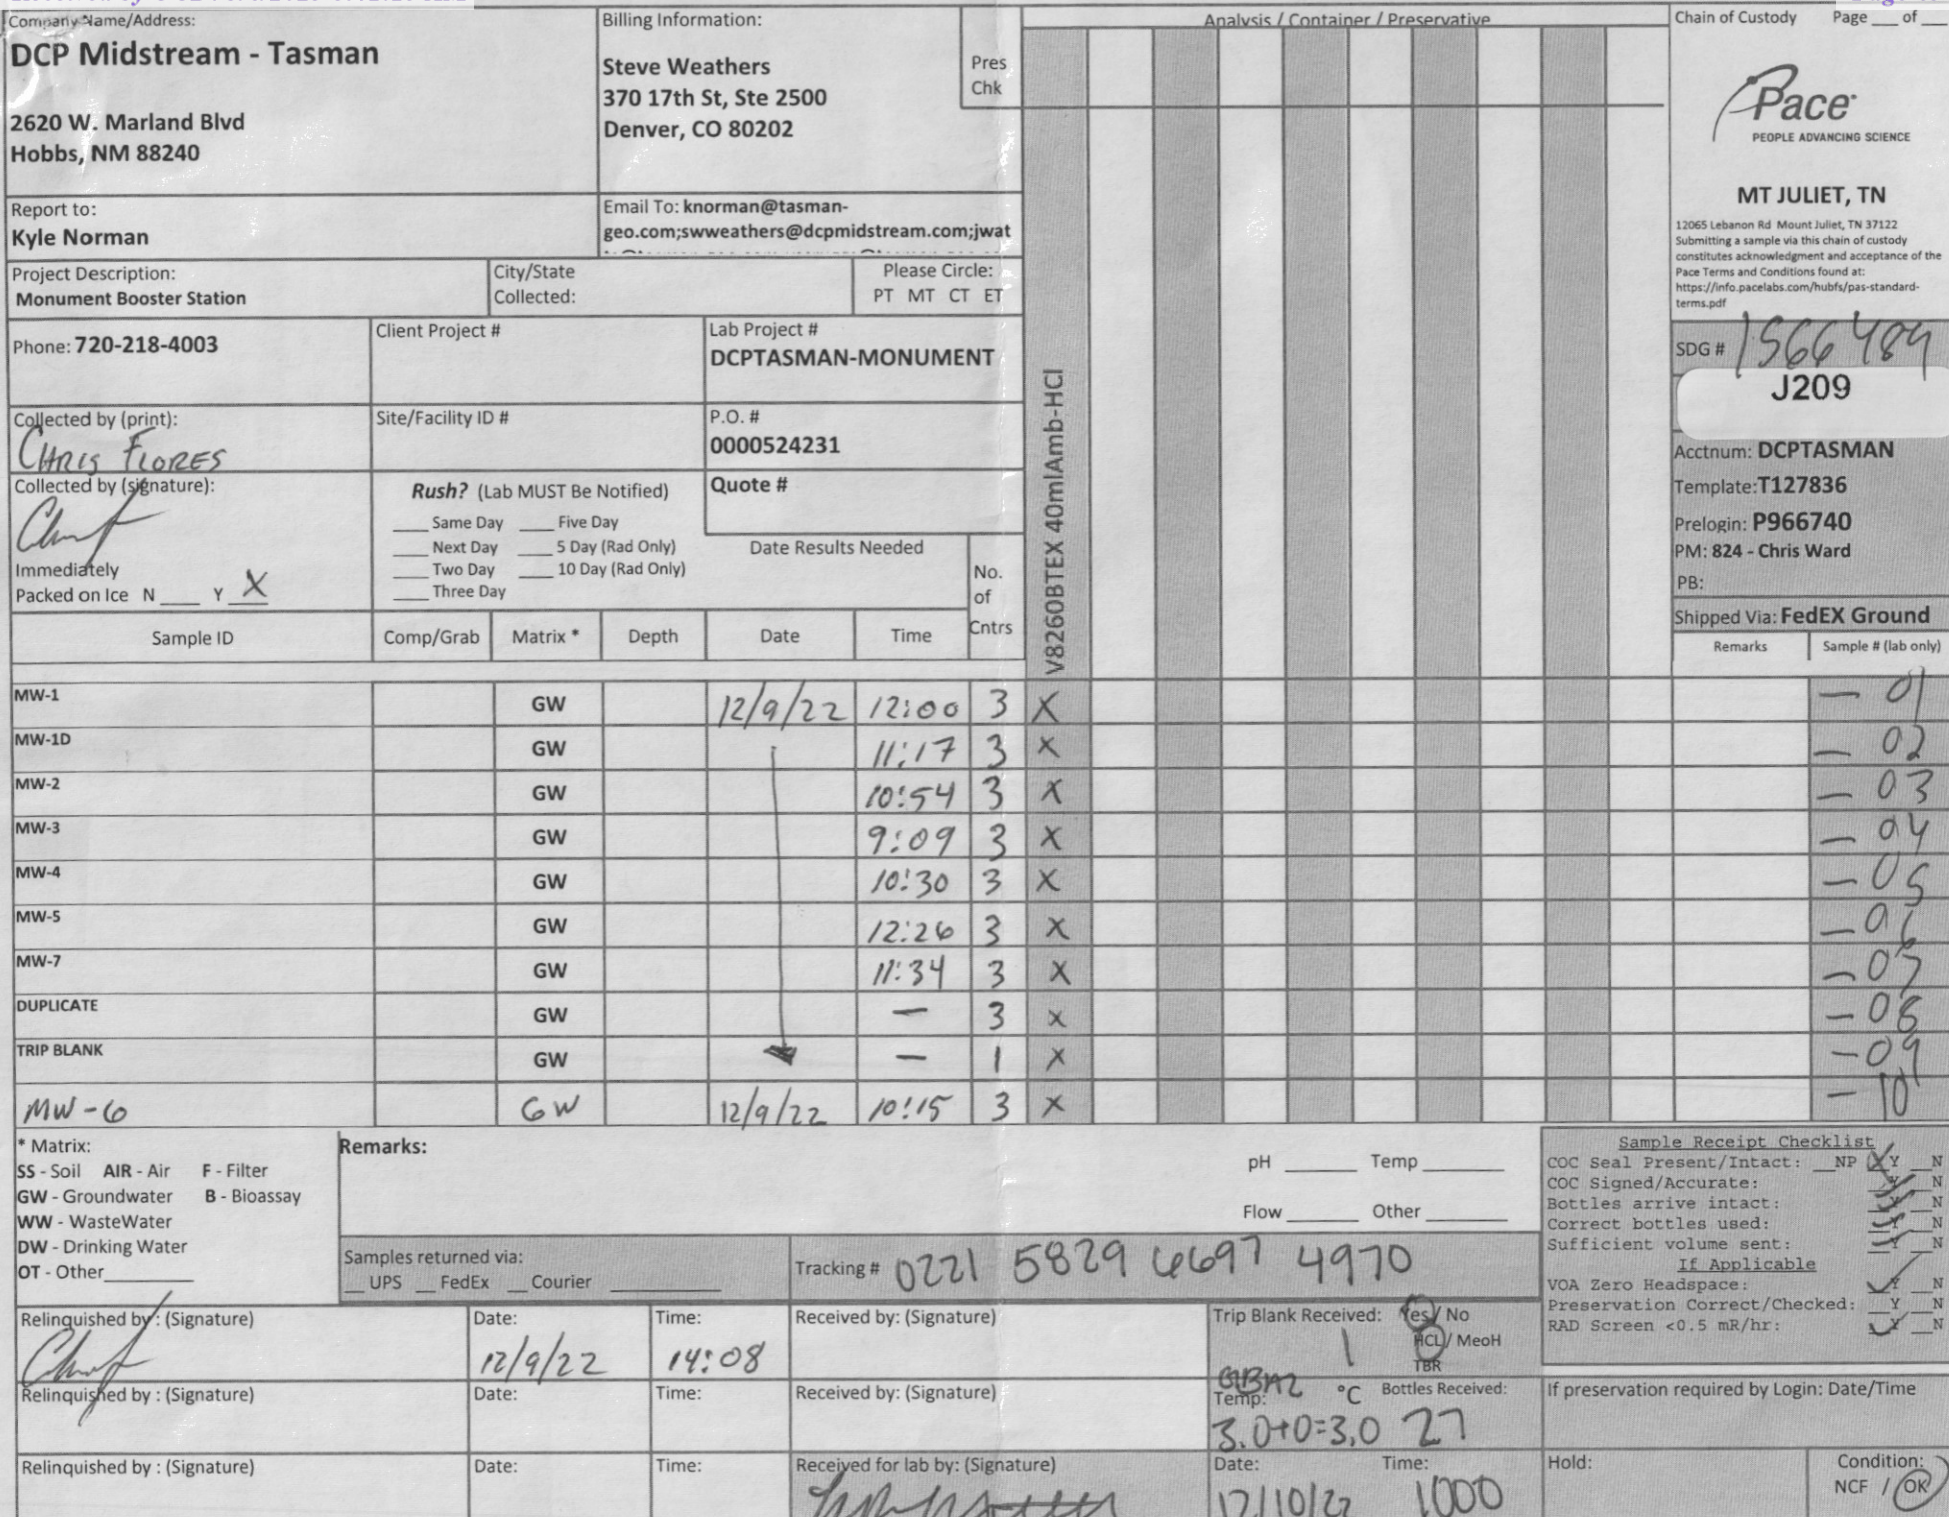 Company Name/Address:
DCP Midstream - Tasman
2620 W. Marland Blvd
Hobbs, NM 88240
Billing Information:
Steve Weathers
370 17th St, Ste 2500
Denver, CO 80202
Pres
Chk
Analysis / Container / Preservative
Chain of Custody Page ___ of ___
Pace
PEOPLE ADVANCING SCIENCE
MT JULIET, TN
12065 Lebanon Rd Mount Juliet, TN 37122
Submitting a sample via this chain of custody
constitutes acknowledgment and acceptance of the
Pace Terms and Conditions found at:
https://info.pacelabs.com/hubfs/pas-standard-
terms.pdf
Report to:
Kyle Norman
Email To: knorman@tasman-
geo.com;swweathers@dcpmidstream.com;jwat
Project Description:
Monument Booster Station
City/State
Collected:
Please Circle:
PT MT CT ET
Phone: 720-218-4003
Client Project #
Lab Project #
DCPTASMAN-MONUMENT
SDG # 1566489
J209
Collected by (print):
CHRIS FLORES
Site/Facility ID #
P.O. #
0000524231
Acctnum: DCPTASMAN
Template: T127836
Prelogin: P966740
PM: 824 - Chris Ward
PB:
Shipped Via: FedEX Ground
Collected by (signature):
Rush? (Lab MUST Be Notified)
___ Same Day ___ Five Day
___ Next Day ___ 5 Day (Rad Only)
___ Two Day ___ 10 Day (Rad Only)
___ Three Day
Quote #
Date Results Needed
Immediately
Packed on Ice N ___ Y X
No.
of
Cntrs
V8260BTEX 40mlAmb-HCl
Sample ID Comp/Grab Matrix * Depth Date Time Remarks Sample # (lab only)
MW-1 GW 12/9/22 12:00 3 X - 01
MW-1D GW 11:17 3 X - 02
MW-2 GW 10:54 3 X - 03
MW-3 GW 9:09 3 X - 04
MW-4 GW 10:30 3 X - 05
MW-5 GW 12:26 3 X - 06
MW-7 GW 11:34 3 X - 07
DUPLICATE GW — 3 X - 08
TRIP BLANK GW — 1 X - 09
MW-6 GW 12/9/22 10:15 3 X - 10
* Matrix:
SS - Soil AIR - Air F - Filter
GW - Groundwater B - Bioassay
WW - WasteWater
DW - Drinking Water
OT - Other___
Remarks:
pH ___ Temp ___
Flow ___ Other ___
Samples returned via:
__ UPS __ FedEx __ Courier ___
Tracking # 0221 5829 6697 4970
Sample Receipt Checklist
COC Seal Present/Intact: __NP X Y __N
COC Signed/Accurate: Y __N
Bottles arrive intact: Y __N
Correct bottles used: Y __N
Sufficient volume sent: Y __N
If Applicable
VOA Zero Headspace: Y __N
Preservation Correct/Checked: __Y __N
RAD Screen <0.5 mR/hr: Y __N
Relinquished by : (Signature) Date: 12/9/22 Time: 14:08 Received by: (Signature)
Trip Blank Received: Yes / No
1 HCL / MeoH
TBR
Relinquished by : (Signature) Date: Time: Received by: (Signature)
Temp: °C Bottles Received:
3.0+0=3.0 27
If preservation required by Login: Date/Time
Relinquished by : (Signature) Date: Time: Received for lab by: (Signature)
Date: 12/10/22 Time: 1000
Hold:
Condition:
NCF / OK